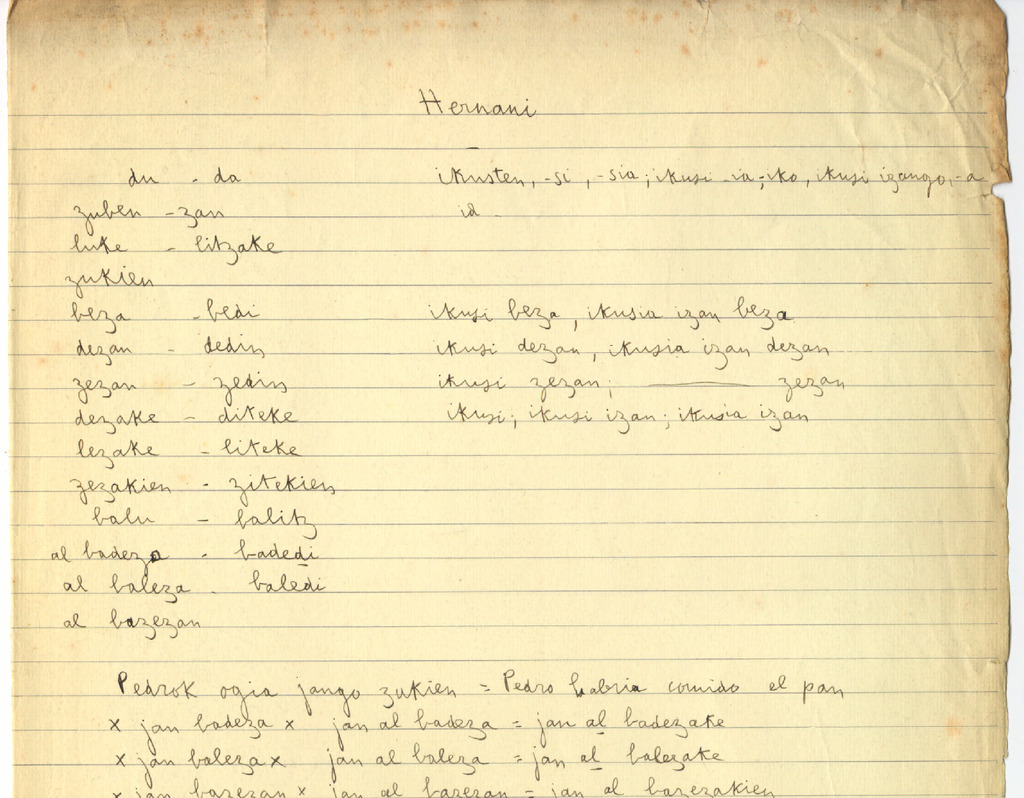 Hernani
du - da ikusten, -si, -sia; ikusi -ia, -iko, ikusi izango, -a
zuben - zan id -
luke - litzake
zukien
beza - bedi ikusi beza, ikusia izan beza
dezan - dedin ikusi dezan, ikusia izan dezan
zezan - zedin ikusi zezan; ——— zezan
dezake - diteke ikusi; ikusi izan; ikusia izan
lezake - liteke
zezakien - zitekien
balu - balitz
al badeza - badedi
al baleza - baledi
al bazezan
Pedrok ogia jango zukien = Pedro habria comido el pan
x jan badeza x jan al badeza = jan al badezake
x jan baleza x jan al baleza = jan al balezake
x jan bazezan x jan al bazezan = jan al bazezakien